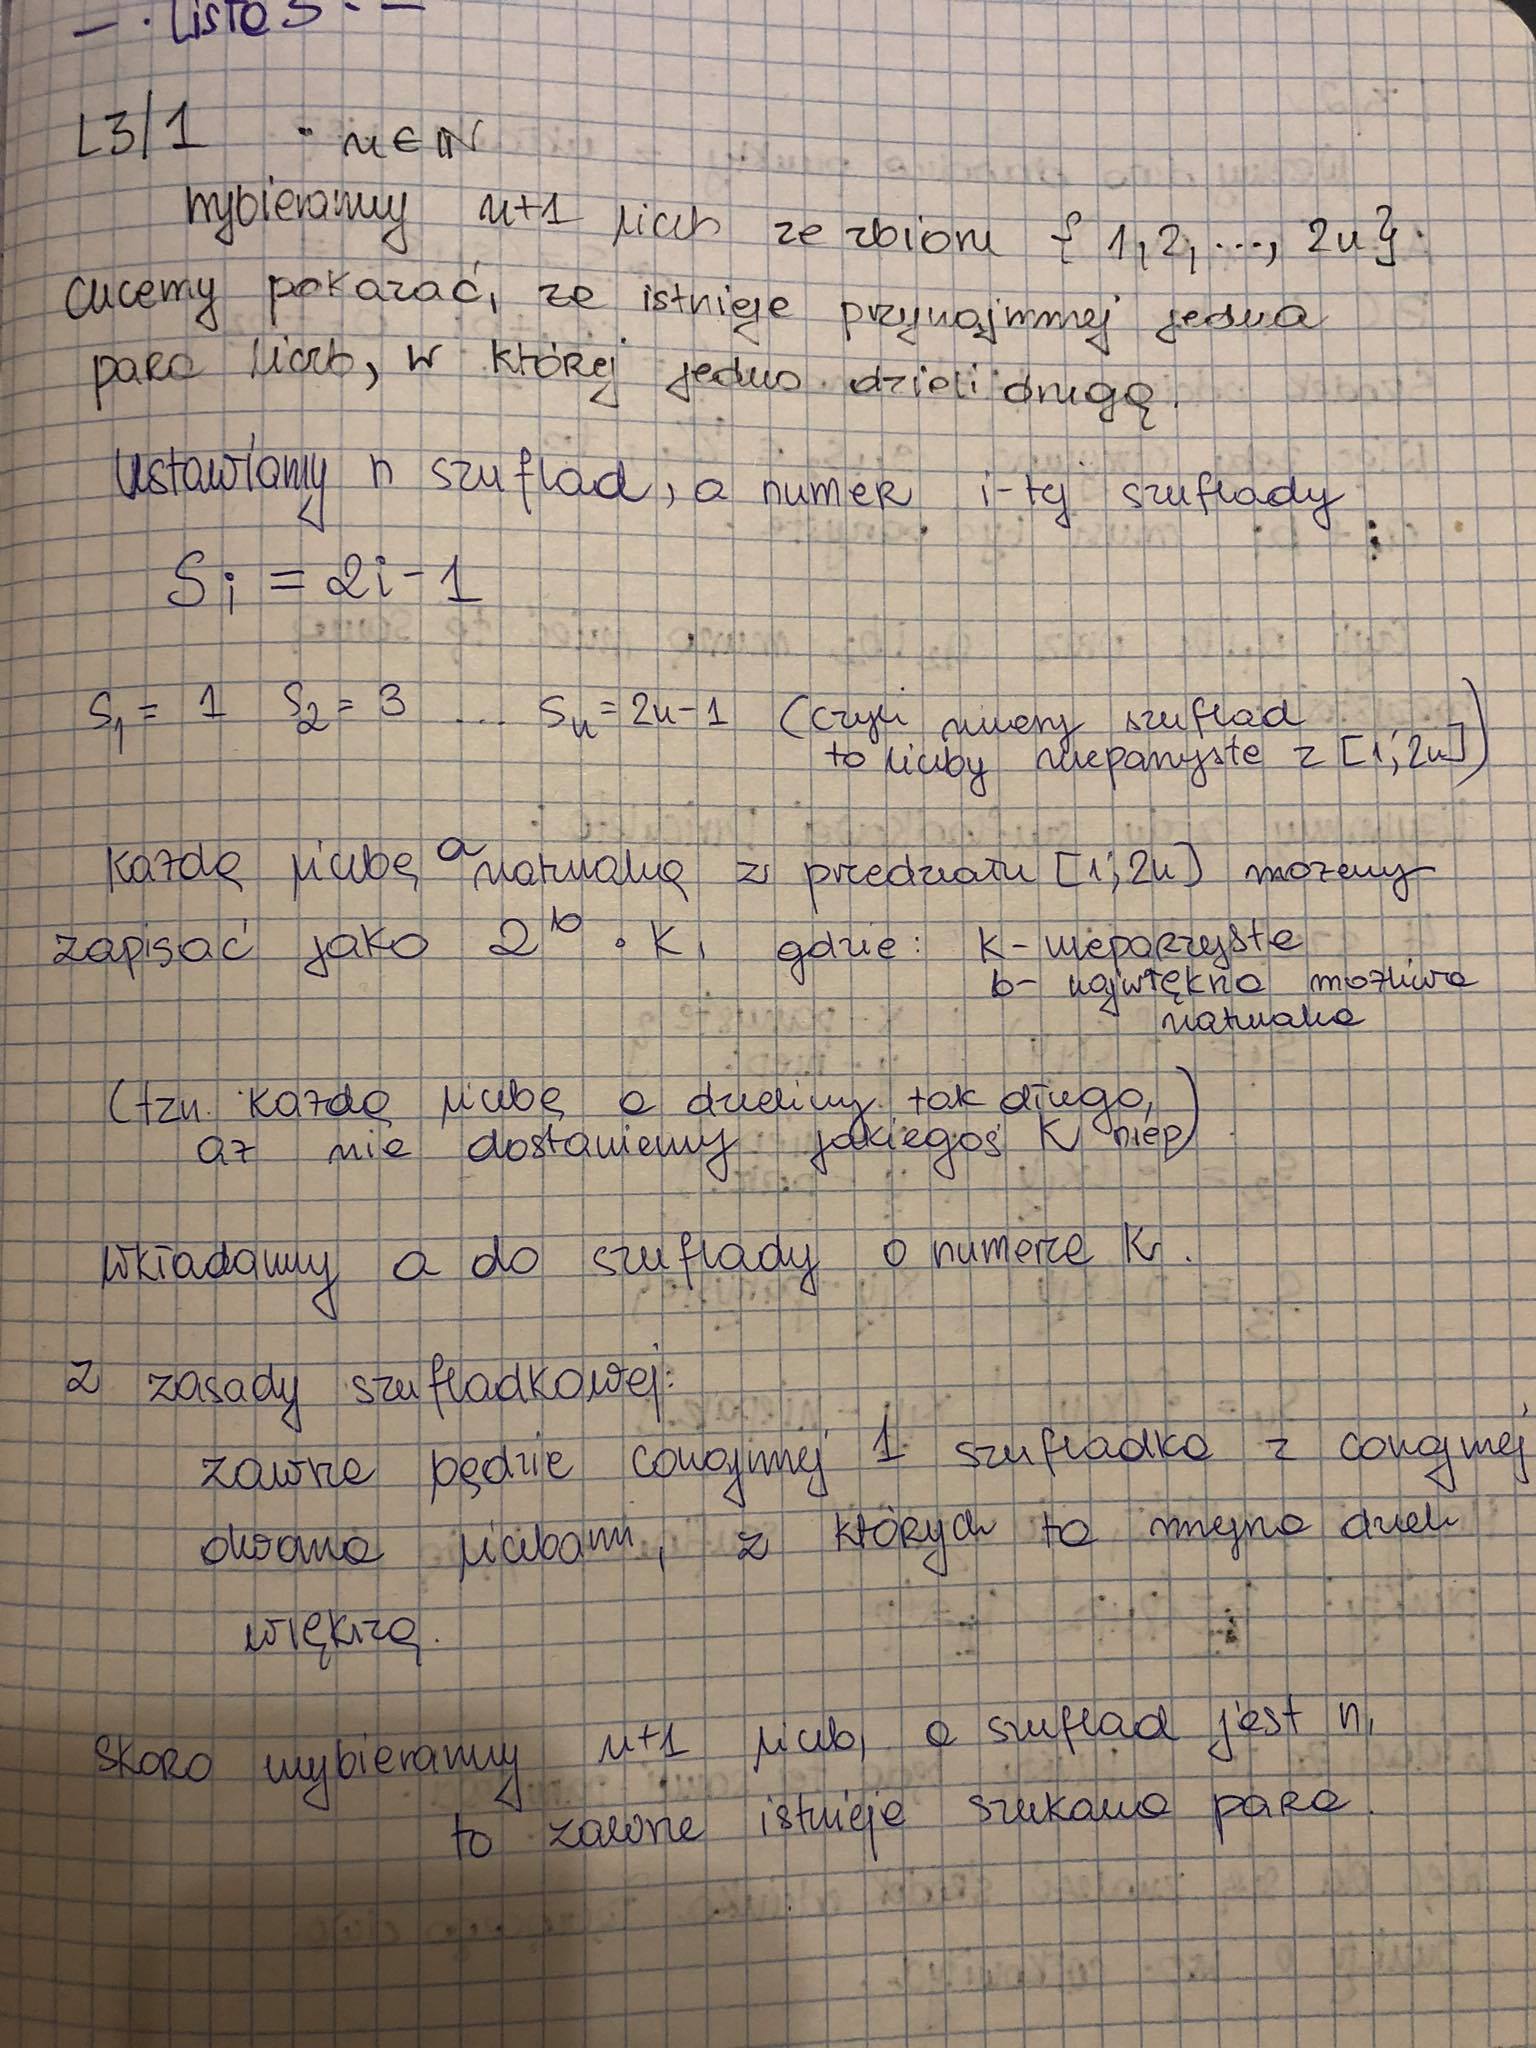 — . Lista 3 . —
L3/1 • n ∈ ℕ
Wybieramy n+1 liczb ze zbioru { 1, 2, ..., 2n }.
Chcemy pokazać, że istnieje przynajmniej jedna
para liczb, w której jedna dzieli drugą.
Ustawiamy n szuflad, a numer i-tej szuflady :
Si = 2i-1
S1 = 1 S2 = 3 ... Sn = 2n-1 (czyli numery szuflad
to liczby nieparzyste z [1; 2n])
Każdą liczbę a naturalną z przedziału [1; 2n] możemy
zapisać jako 2^b • k, gdzie: k - nieparzyste
b - największa możliwa
naturalna
(tzn. każdą liczbę a dzielimy tak długo,
aż nie dostaniemy jakiegoś k niep)
Wkładamy a do szuflady o numerze k.
Z zasady szufladkowej:
zawsze będzie conajmniej 1 szufladka z conajmniej
dwoma liczbami, z których ta mniejsza dzieli
większą.
Skoro wybieramy n+1 liczb, a szuflad jest n,
to zawsze istnieje szukana para.